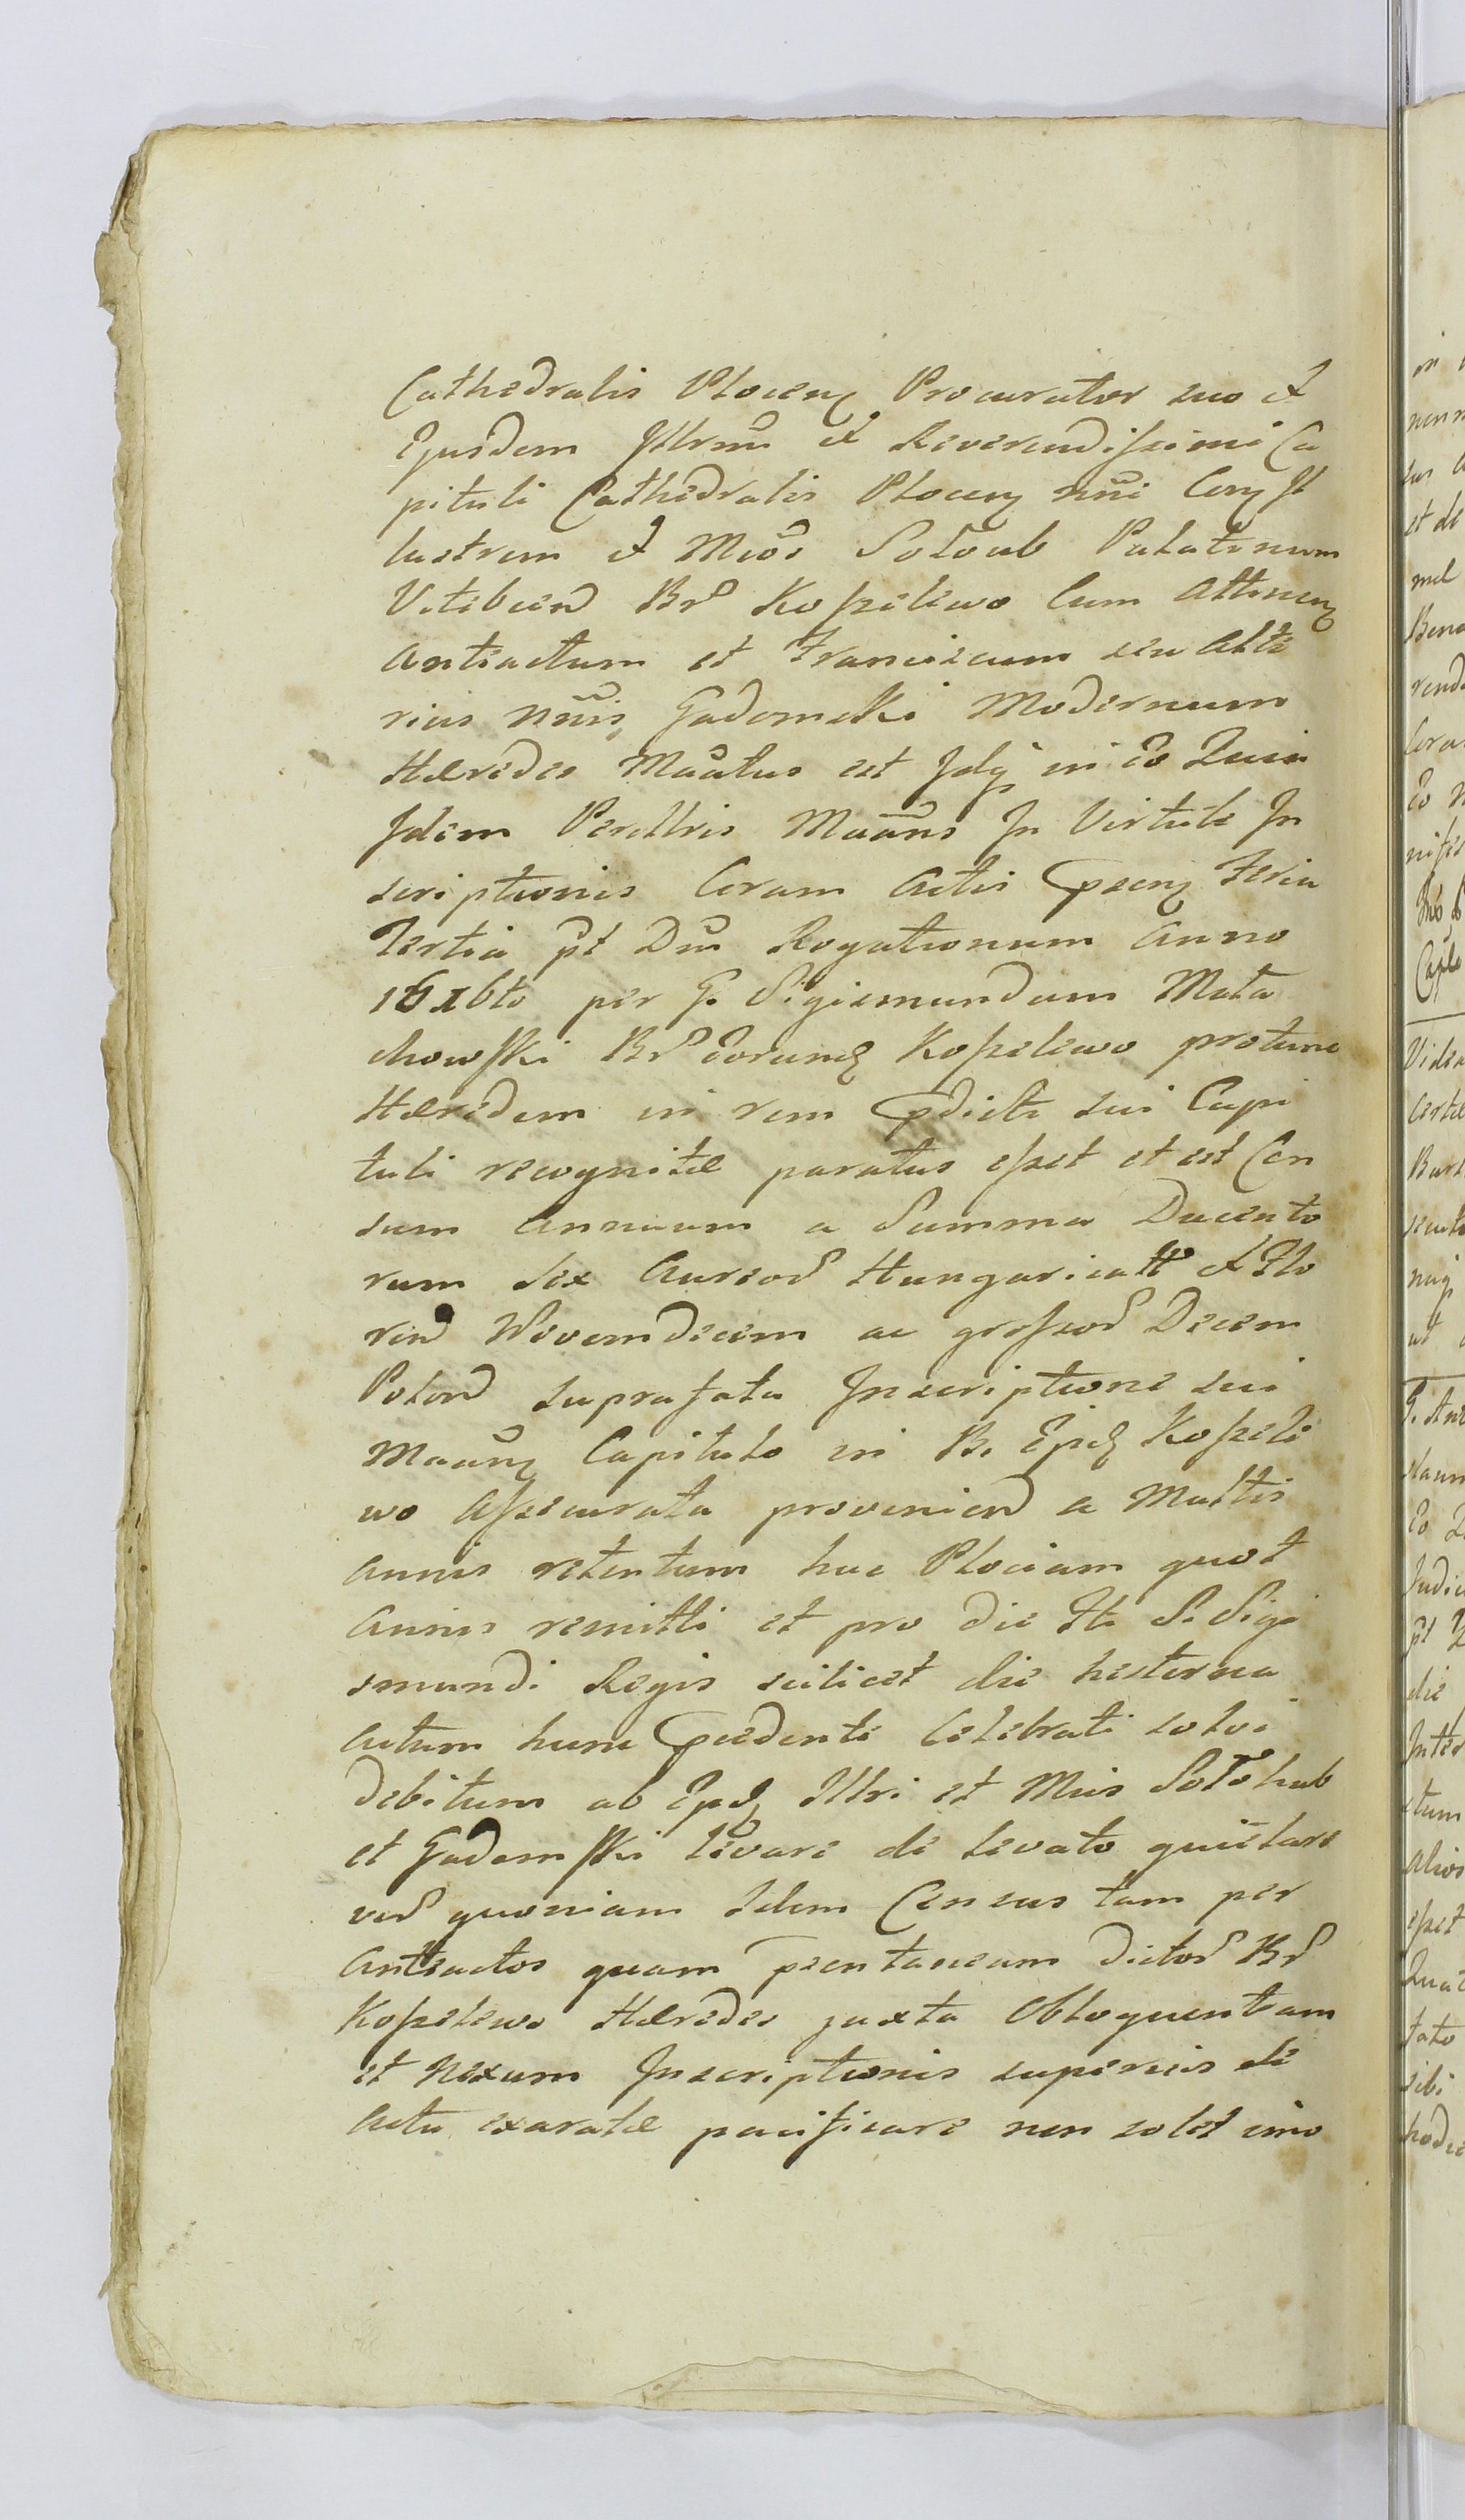 Cathedralis Plocen Procurator suo et
Ejusdem Jllrmi et Reverendissimi Ca
pituli Cathedralis Plocen nni Con Jl
lustrem et Mcos Soloub Palatinum
Vitebcen Br Koszelewo Cum Attinen
Antiactum et Franciscum seu Alte
rius nnis Gadomski Modernum
Hæredes Maatus est Jdq in eo Quia
Jdem Perillris Maans Jn Virtute Jn
scriptionis Coram Actis psen Feria
Tertia pt Dm Rogationum Anno
1616to per G. Sigismundum Mala
chowski Br eorund Koszelewo protunc
Hæredem in rem pdicti sui Capi
tuli recognitæ paratus esset et est Cen
sum Annuum a Summa Ducento
rum Sex Aureor Hungaricall et Flo
ren Novemdecim ac grossor Decem
Polon suprafata Jnscriptione sui
Maan Capitulo in B. Epd Koszele
wo Assecurata provenien a Multis
Annis retentum huc Plociam quot
Annis remitti et pro die Fti S. Sigi
smundi Regis scilicet die hesterna
Actum hunc pcedenti Celebrati solvi
debitum ab Epd Jllri et Mcis Solohub
et Gadomski levare de levato quietare
ver quoniam Idem Census tam per
Antiactos quam psentaneum dictor Br
Koszelewo Hæredes juxta Obloquentiam
et Nexum Jnscriptionis superius de
Actu exaratæ pacificare non solet imo
in
et de
mel